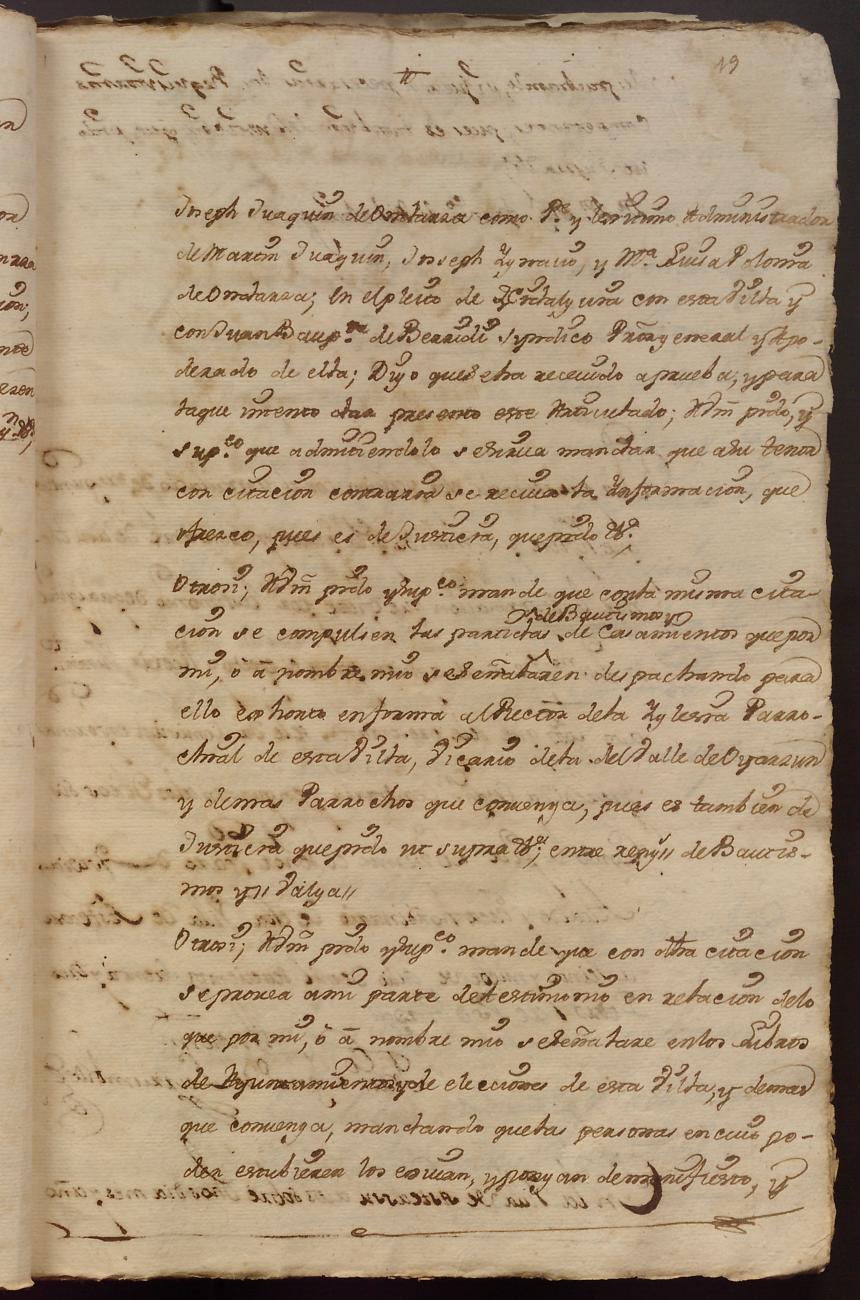 19
Joseph Juaquin de Ondarza como P.e y lexitimo Administrador
de Martin Juaquin, Joseph Ygnacio, y M.a Luisa Polonia
de Ondarza; En el pleito de Ydalguia con esta Villa y
con Juan Baup.ta de Berridi Syndico Pror general y Apo-
derado de ella; Digo que se ha recevido a prueba, y para
la que intento dar presento este Articulado; A Vm pido, y
sup.co que admitiendolo se sirva mandar que a su tenor
con citacion contraria se reciva la Ynformacion, que
ofrezco, pues es de Justicia, que pido &.a
Otrosi; A Vm pido y sup.co mande que con la misma cita-
cion se compulsen las partidas de Bautismos y de Casamientos que por
mi, ó â nombre mio se señalaren despachando para
ello exhorto en forma al Rector de la Yglesia Parro-
chial de esta Villa, Vicario de la del Valle de Oyarzun
y demas Parrochos que convenga, pues es tambien de
Justicia que pido ut supra &.a; entre reng.s // de Bautis-
mos y // Valga //
Otrosi; A Vm pido y sup.co mande que con dha citacion
se provea a mi parte de testimonio en relacion de lo
que por mi, ó â nombre mio se señalare en los Libros
de Ayuntamientos y de elecciones de esta Villa, y demas
que convenga, mandando que las personas en cuio po-
der estubieren los exivan, y pongan de manifiesto, y